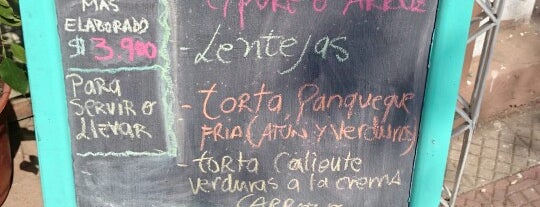 MAS
ELABORADO
$3.900
PARA
SERVIR O
LLEVAR
- Lentejas
- TORTA Panqueque
FRIA (ATÚN Y VERDURAS)
- TORTA Caliente
verduras a la crema